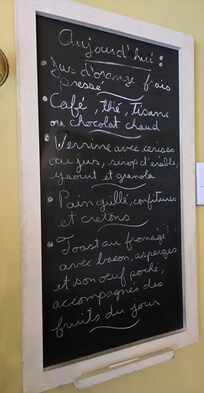 Aujourd'hui :
• Jus d'orange frais
pressé
• Café, thé, tisane
ou chocolat chaud
• Verrine avec cerises
au jus, sirop d'érable,
yaourt et granola
• Pain grillé, confitures
et cretons
• Toast au fromage
avec bacon, asperges
et son oeuf poché,
accompagnés des
fruits du jour